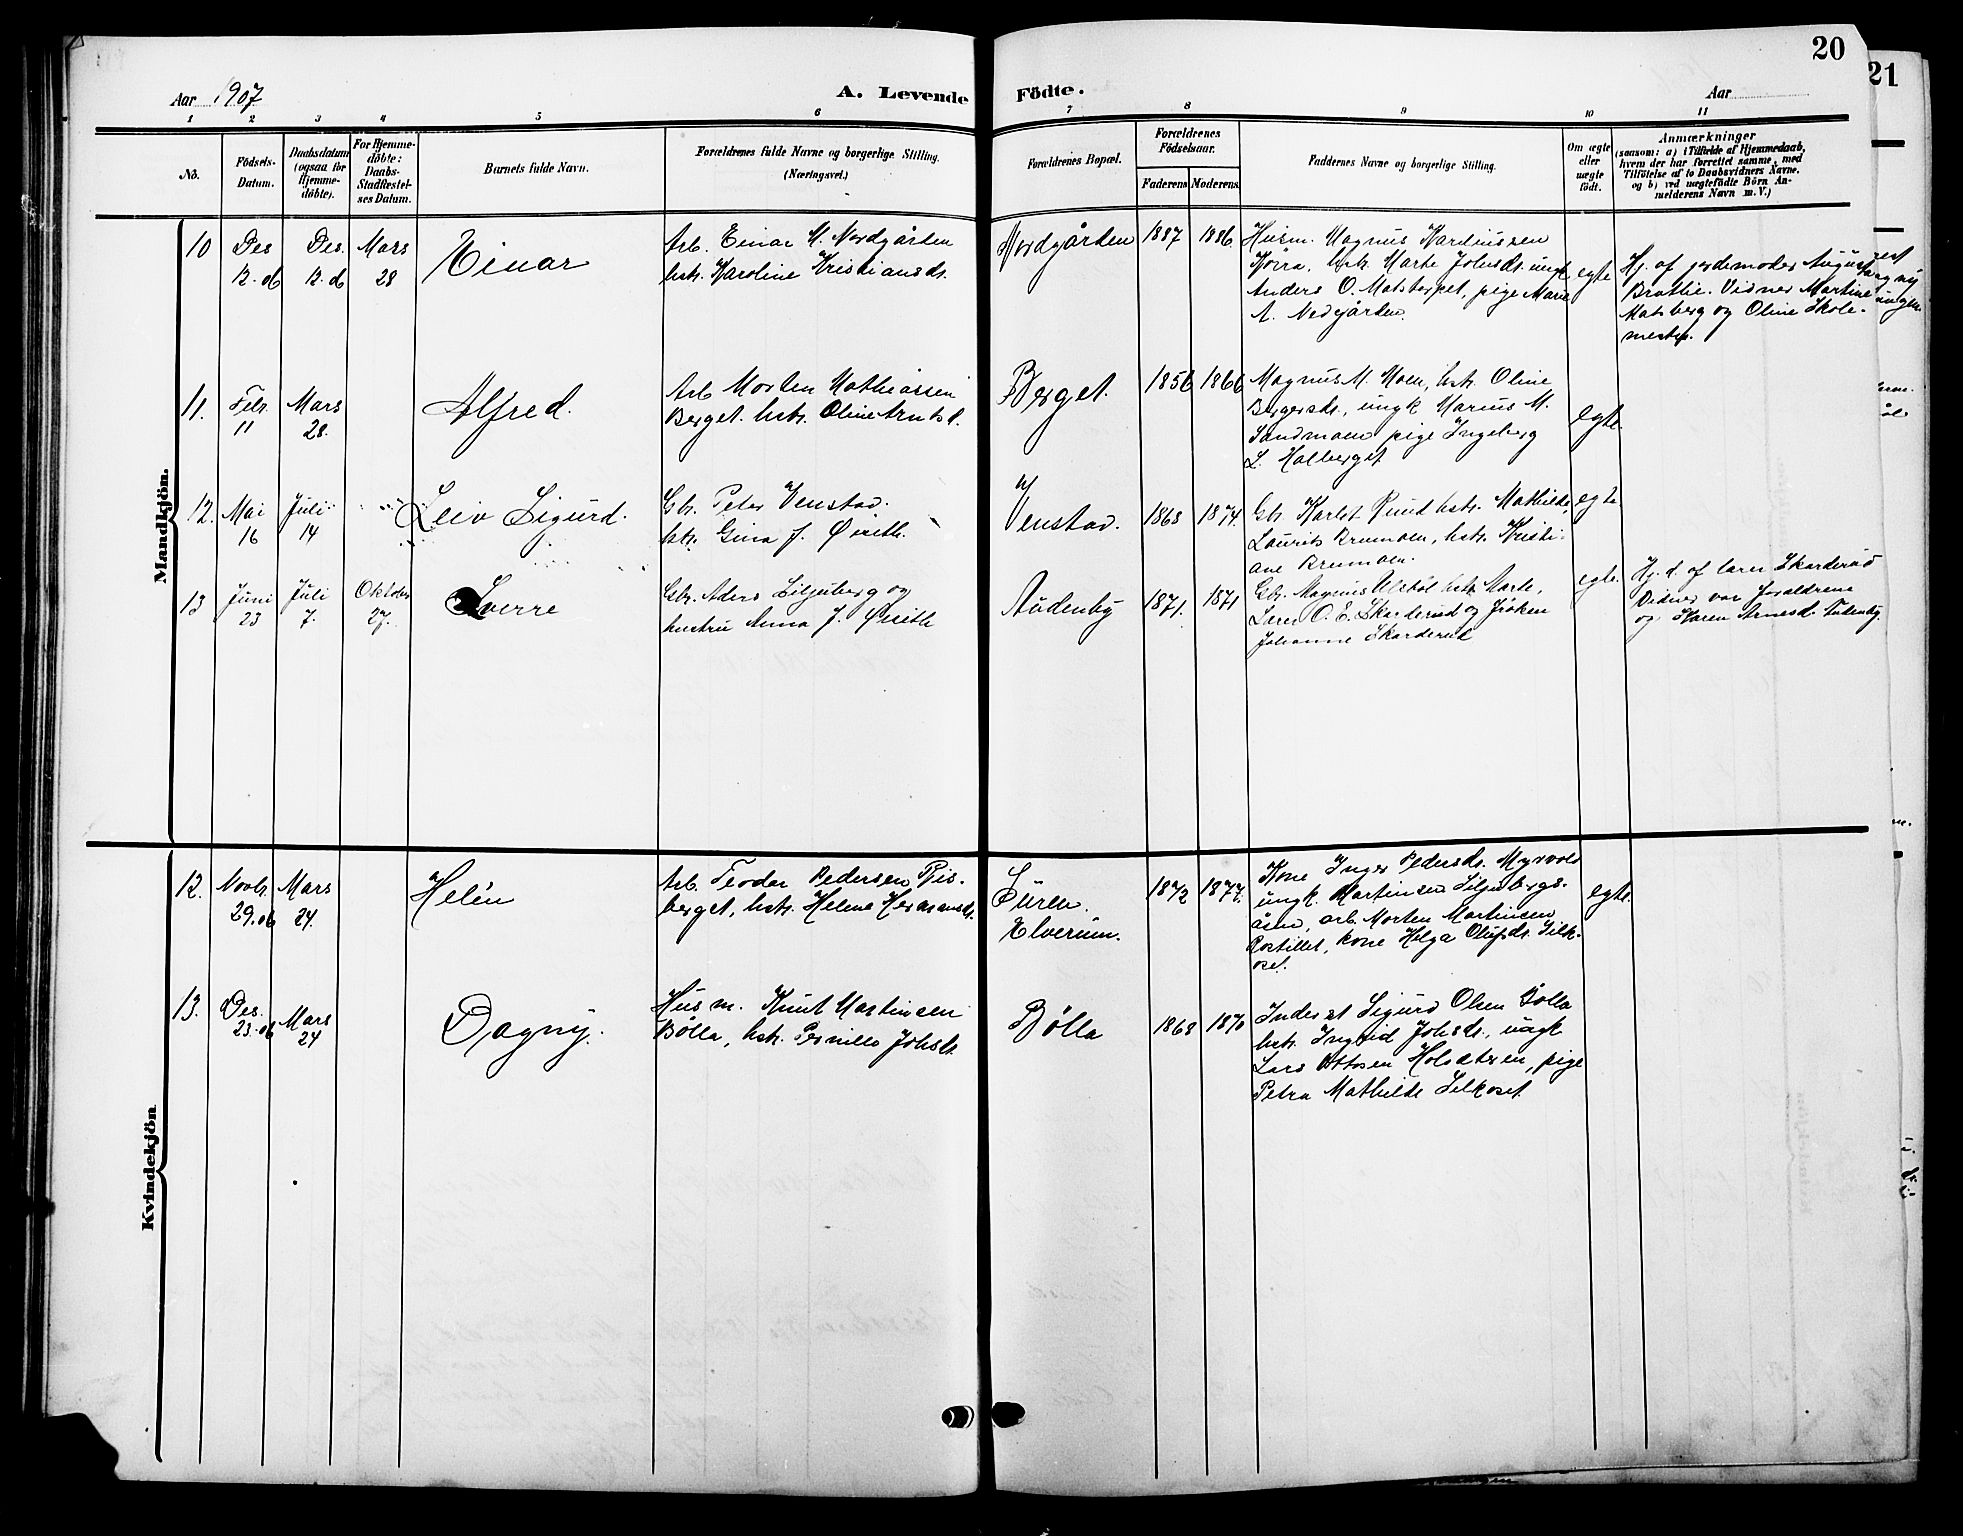 20
21
Aar 1907
A. Levende Födte.
Aar
1 2 3 4 5 6 7 8 9 10 11
No.
Födsels-
Datum.
Daabsdatum
(ogsaa for
Hjemme-
döbte).
For Hjemme-
döbte:
Daabs-
Stadfæstel-
ses Datum.
Barnets fulde Navn.
Forældrenes fulde Navne og borgerlige Stilling.
(Næringsvei.)
Forældrenes Bopæl.
Forældrenes
Födselsaar.
Faderens Moderens
Faddernes Navne og borgerlige Stilling.
Om ægte
eller
uægte
födt.
Anmærkninger
(saasom: a) i Tilfælde af Hjemmedaab,
hvem der har forrettet samme, med
Tilföielse af to Daabsvidners Navne.
og b) ved uægtefödte Börn An-
melderens Navn m. V.)
Mandkjön.
10
Des
12. 06
Des.
12. 06
Mars
28
Einar
Arb. Einar M. Nordgården
hstr. Karoline Kristiansd.
Nordgården
1887 1886
Husm. Magnus
hstr. Marte Johsdr. ungk.
Anders O. Matsberget, pige Marie
A. Nedgården.
egte
Hj. af jordemoder August
Brathe. Vidner Martine
Matsberg og Oline Skole-
mester.
11.
Febr.
11
Mars
28.
Alfred.
Arb Morten Mathiassen
Berget. hstr. Oline Arntsd.
Berget.
1856 1866
Magnus M. Moen, hstr. Oline
Bergersdr., ungk Marius M.
Sandmoen pige Ingeborg
L. Halberget
egte.
12.
Mai
16
Juli
14
Leiv Sigurd.
Gbr. Peter Venstad.
hstr. Gina J. Øieith.
Venstad.
1868 1874.
Gbr. Karlst. Rund hstr. Mathilde
Laurits Brumoen, hstr. Kristi-
ane Brumoen.
egte
13
Juni
23
Juli
7.
Oktober
27.
Sverre
Gbr. Aders Liljuberg og
hustru Anna J. Øieith
Audenby
1871. 1871
Gbr. Magnus Ulsböl hstr. Marte,
Lærer O. E. Skarderud og fröken
Johanne Skarderud
egte.
Hj. d. af lærer Skarderud
Vidner var forældrene
og Karen Arnesd. Audenby.
Kvindekjön
12.
Novbr.
29. 06
Mars
24.
Helén
Arb. Teodor Pedersen Ris-
berget, hstr. Helene Hermansd.
Elverum.
1872 1877.
Kone Inger Pedersdr. Myrvold
ungk. Martinsen Liljubergs-
åsen, arb. Morten Martinsen
kone Helga Olufsdr. Silk-
oset.
egte.
13.
Des.
23. 06
Mars
24
Dagny.
Husm. Knut Martinsen
Bölla, hstr. Pernille Johsdr.
Bölla
1868 1870
Inderst Sigurd Olsen Bölla
hstr. Ingrid Johsdr., ungk
Lars Ottosen Holsæteren, pige
Petra Mathilde Silkoset